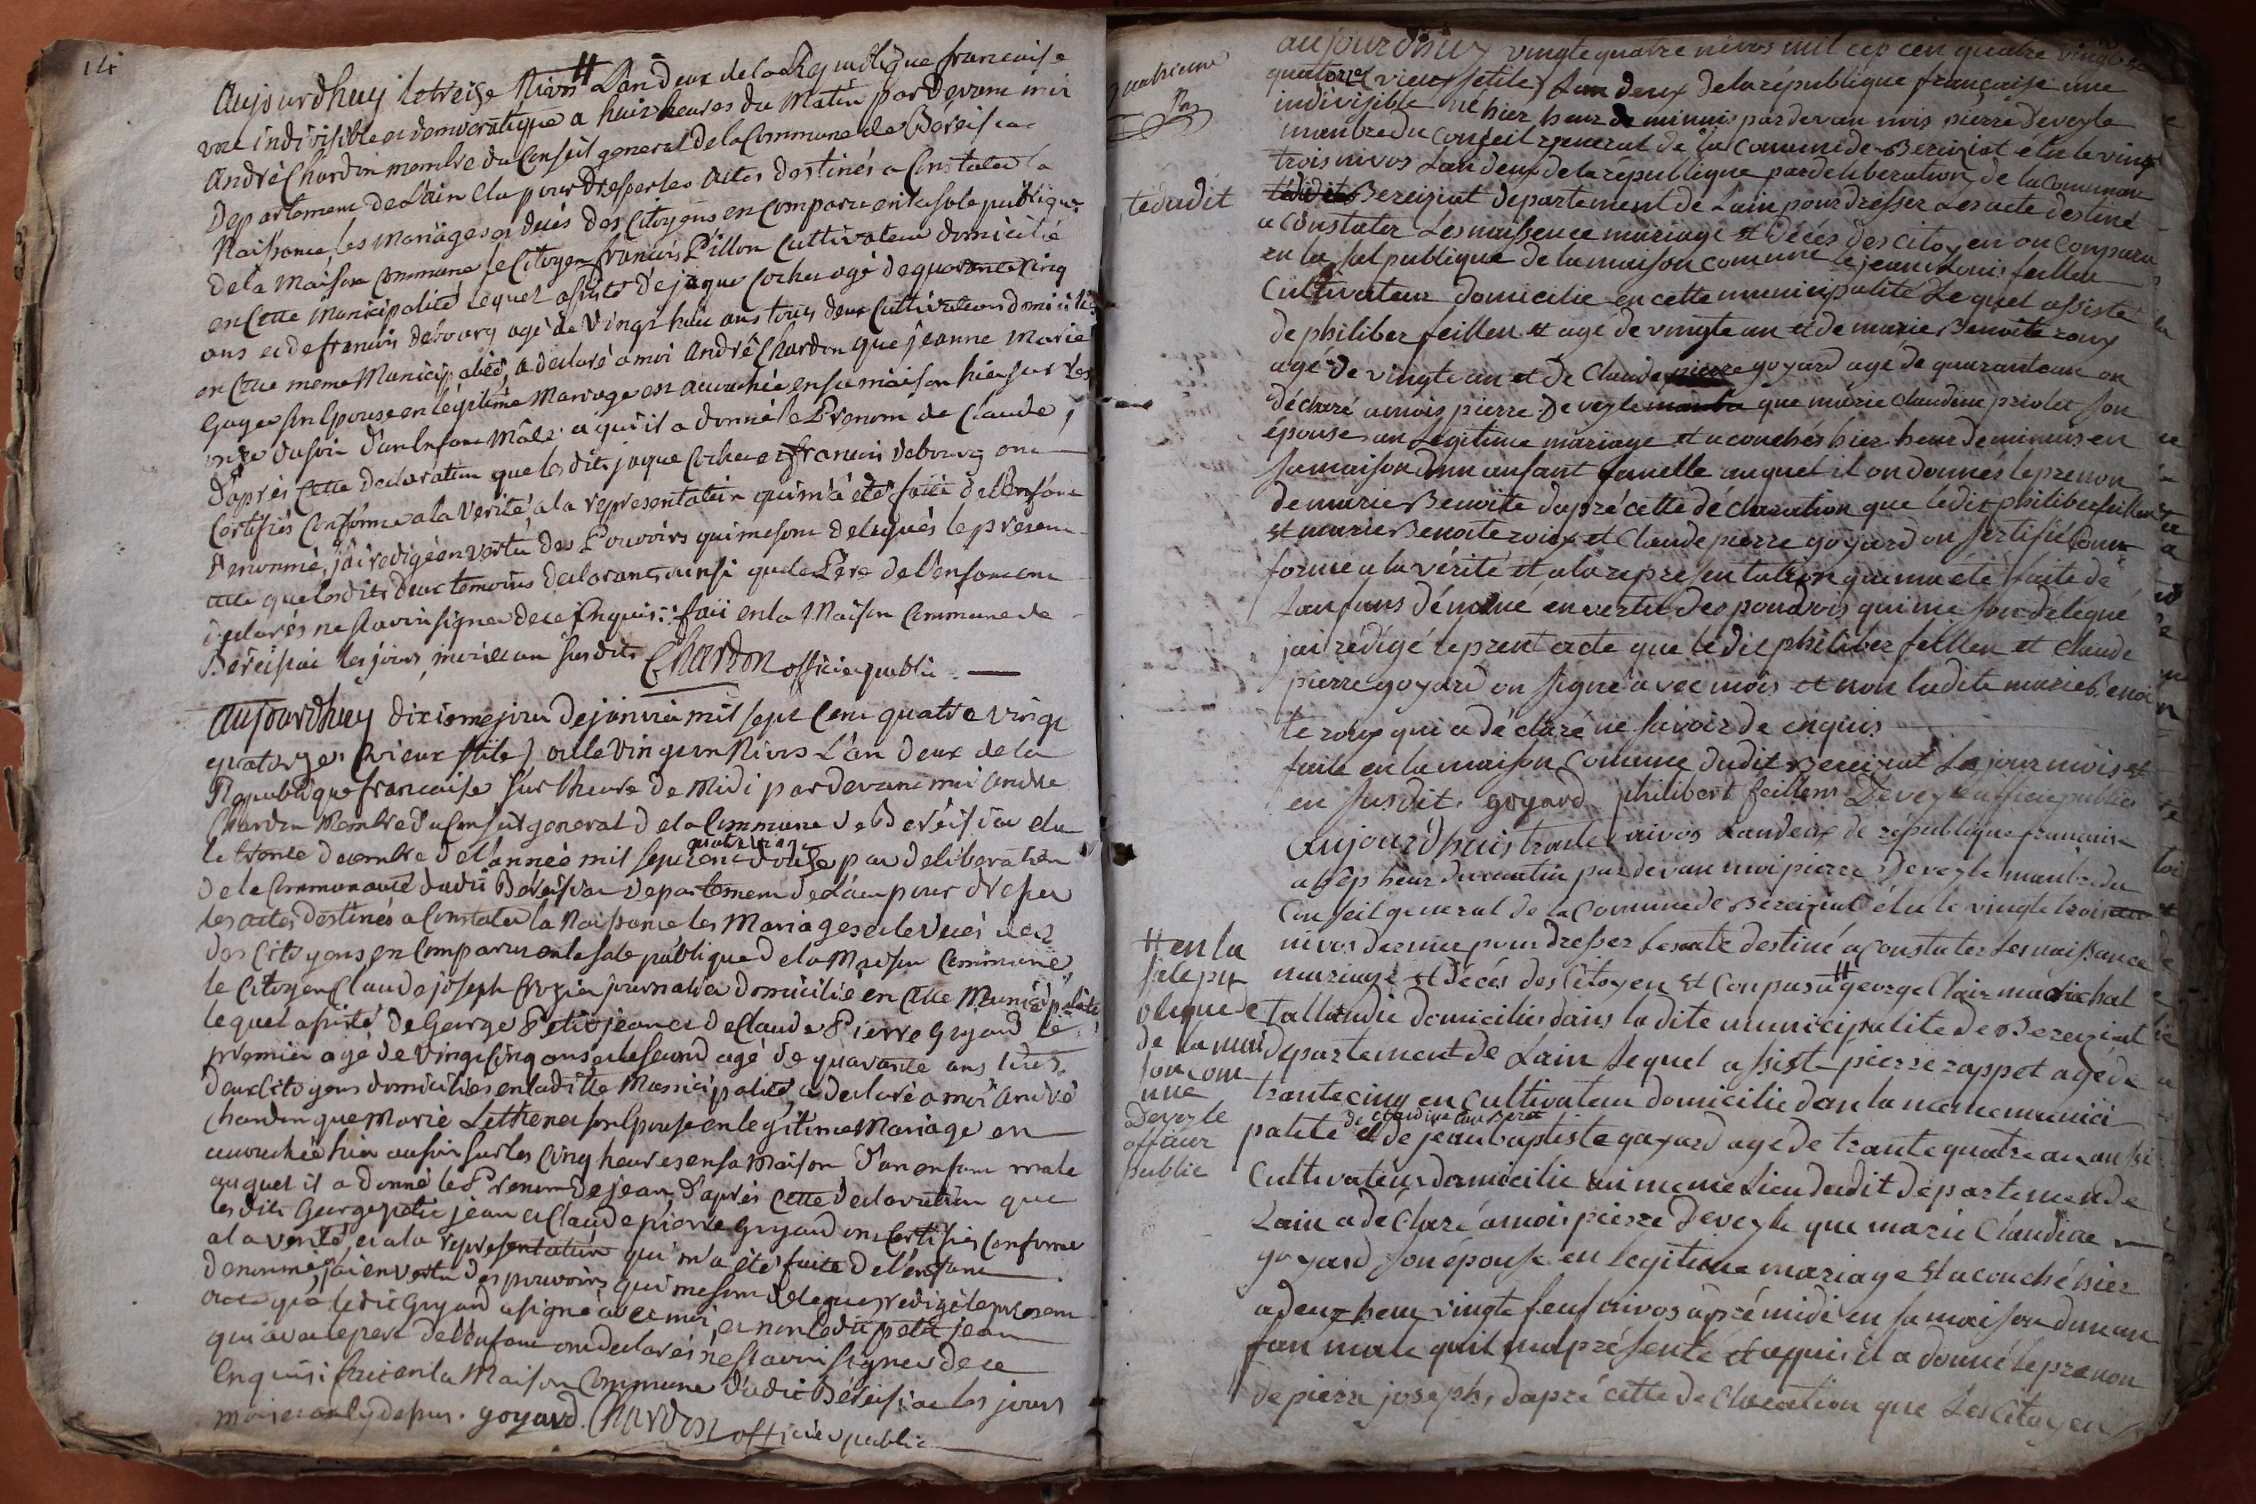 14
Aujourdhuy le treize Nivos # L'an deux de la Republique francaise
une indivisible et democratique a huit heures du Matin par devant moi
André Chardon membre du Conseil general de la Commune de Béréisia
Departement de L'ain Elu pour Dresser les actes destinés a Constater la
Naissance, les Mariages et décès des Citoyens en Comparu en la sale publique
de la Maison Commune le Citoyen francois Pillon Cultivateur domicilié
en Cette Municipalité lequel assisté de jaque Cochet agé de quarante cinq
ans et de francois debourg agé de Vingt huit ans tous deux Cultivateurs domicilié
en Cette meme Municipalité, a declaré a moi André Chardon que jeanne Marie
Goyer son Epouse en légitime Mariage est accouchée en sa maison hier sur les
onze du soir d'un Enfant Mâle a qui il a donné le Prenom de Claude,
d'après Cette declaration que les dits jaque Cochet et francois debourg ont
Certifiés Conforme a la Verité a la representation qui m'a été faite de l'Enfant
Denommé, j'ai redigé en vertu des Pouvoirs qui me sont delegués le present
acte que les dits deux temoins declarants ainsi que le Pere de l'enfant ont
declarés ne scavoir signer de ce Enquis. fait en la Maison Commune de
Béréisiai les jours, mois et an susdits Chardon officier public
Aujourdhuy dixieme jour de janvier mil sept Cent quatre vingt
quatorze (vieux stile) ou le Vingt un Nivos L'an deux de la
Republique francaise sur l'heure de Midi par devant moi André
Chardon Membre du Conseil general de la Commune de Béréisiai elu
le trente decembre de l'année mil sept cent quatre vingt douze par deliberation
de la Communauté dudit Béréisiai departement de L'ain pour dresser
les actes destinés a Constater la Naissance les Mariages et le décès
des Citoyens, en Comparu en la sale publique de la Maison Commune
le Citoyen Claude joseph Crozier journalier domicilié en Cette Municipalité
lequel assisté de George Petitjean et de Claude Pierre Goyard le
premier agé de vingt Cinq ans et le second agé de quarante ans
deux Citoyens domiciliés en la ditte Municipalité, a declaré a moi André
Chardon que Marie Lethenet son Epouse en legitime Mariage est
accouchée hier au soir sur les Cinq heures en sa Maison d'un enfant male
auquel il a donné le Prenom de jean, d'après Cette declaration que
les dits George petit jean et Claude pierre Goyard ont Certifiés Conforme
a la verité et a la representation qui m'a été faite de l'enfant
denommé, j'ai en vertu des pouvoirs qui me sont delegués, redigé le present
acte que le dit Goyard a signé avec moi, et non le dit petit jean
qui avec le pere de l'Enfant ont declarés ne scavoir signer de ce
Enquis: fait en la Maison Commune dudit Béréisiai les jours
mois et an cy dessus. goyard. Chardon officier public
quatrieme
aujourdhuy vingte quatre nivos mil cep cen quatre vingt
quatorze (vieux stile) L'an deux de la république française une
indivisible hier heur de minuis par devan mois pierre Deveyle
manbre du conseil general de la comune de Bereiziat elu le vingt
trois nivos Lan deux de la république par deliberation de la comunau
tédudit Bereiziat departement de Lain pour dresser Les acte destiné
a constater Les naissence mariage et décés des citoyen on comparu
en la sal publique de la maison comune le jean Louis feillen
Cultivateur domicilié en cette municipalité Lequel assisté
de philiber feillen et agé de vingte an et de marie Benoite roux
agé de vingte an et de Claude pierre goyard agé de quarante an on
déclaré a mois pierre Deveyle que marie claudine priolet son
épouse an Légitime mariage et acouchés hier heur de minuis en
sa maison dun anfant famelle auquel il on donnés le prenon
de marie Benoite dapré cette déclaration que ledit philiber feillen
et marie Benoite roux et Claude pierre goyard on sertifié Con
forme a la vérité et a la representation qui ma été faite de
Lanfans dénomé en vertu des pouvois qui me son délégué
jai rédigé le prent acte que ledit philiber feillen et claude
pierre goyard on signé avec mois et non ladite marie Benoi
te roux qui a déclaré ne savoir de enquis
faite en la maison comune dudit Bereiziat Les jour mois et
en susdit. goyard philibert feillens Deveyle officie public
aujourdhuis trante nivos Landeux de république francaise
a sep heur du matin par devan moi pierre Deveyle manbre du
Conseil general de la Comune de Bereiziat élu le vingte trois
nivos dernie pour dresser Les acte destiné a constater Les naissance
mariage et décés des citoyen Et Conparu # george Clair maréchal
# en la
sale pu
blique de
la mai
son com
une
Deveyle
officier
public
Tallandie domicilié dans ladite municipalite de Bereziat
departement de Lain Lequel assisté pierre rappet agé de
trante cinq en cultivateur domicilié dan la meme munici
palité et de jean baptiste goyard age de trante quatre an aussi
Cultivateur domicilie au meme Lieu dudit departemen de
Lain a déclaré a mois pierre Deveyle que marie Claudine
goyard son épouse en legitime mariage Et acouché hier
a deux heur vingte neuf nivos apré midi en sa maison dun an
fan male quil ma présenté et aqui il a donné le prenon
de pierre joseph, dapré cette déclaration que Les citoyen